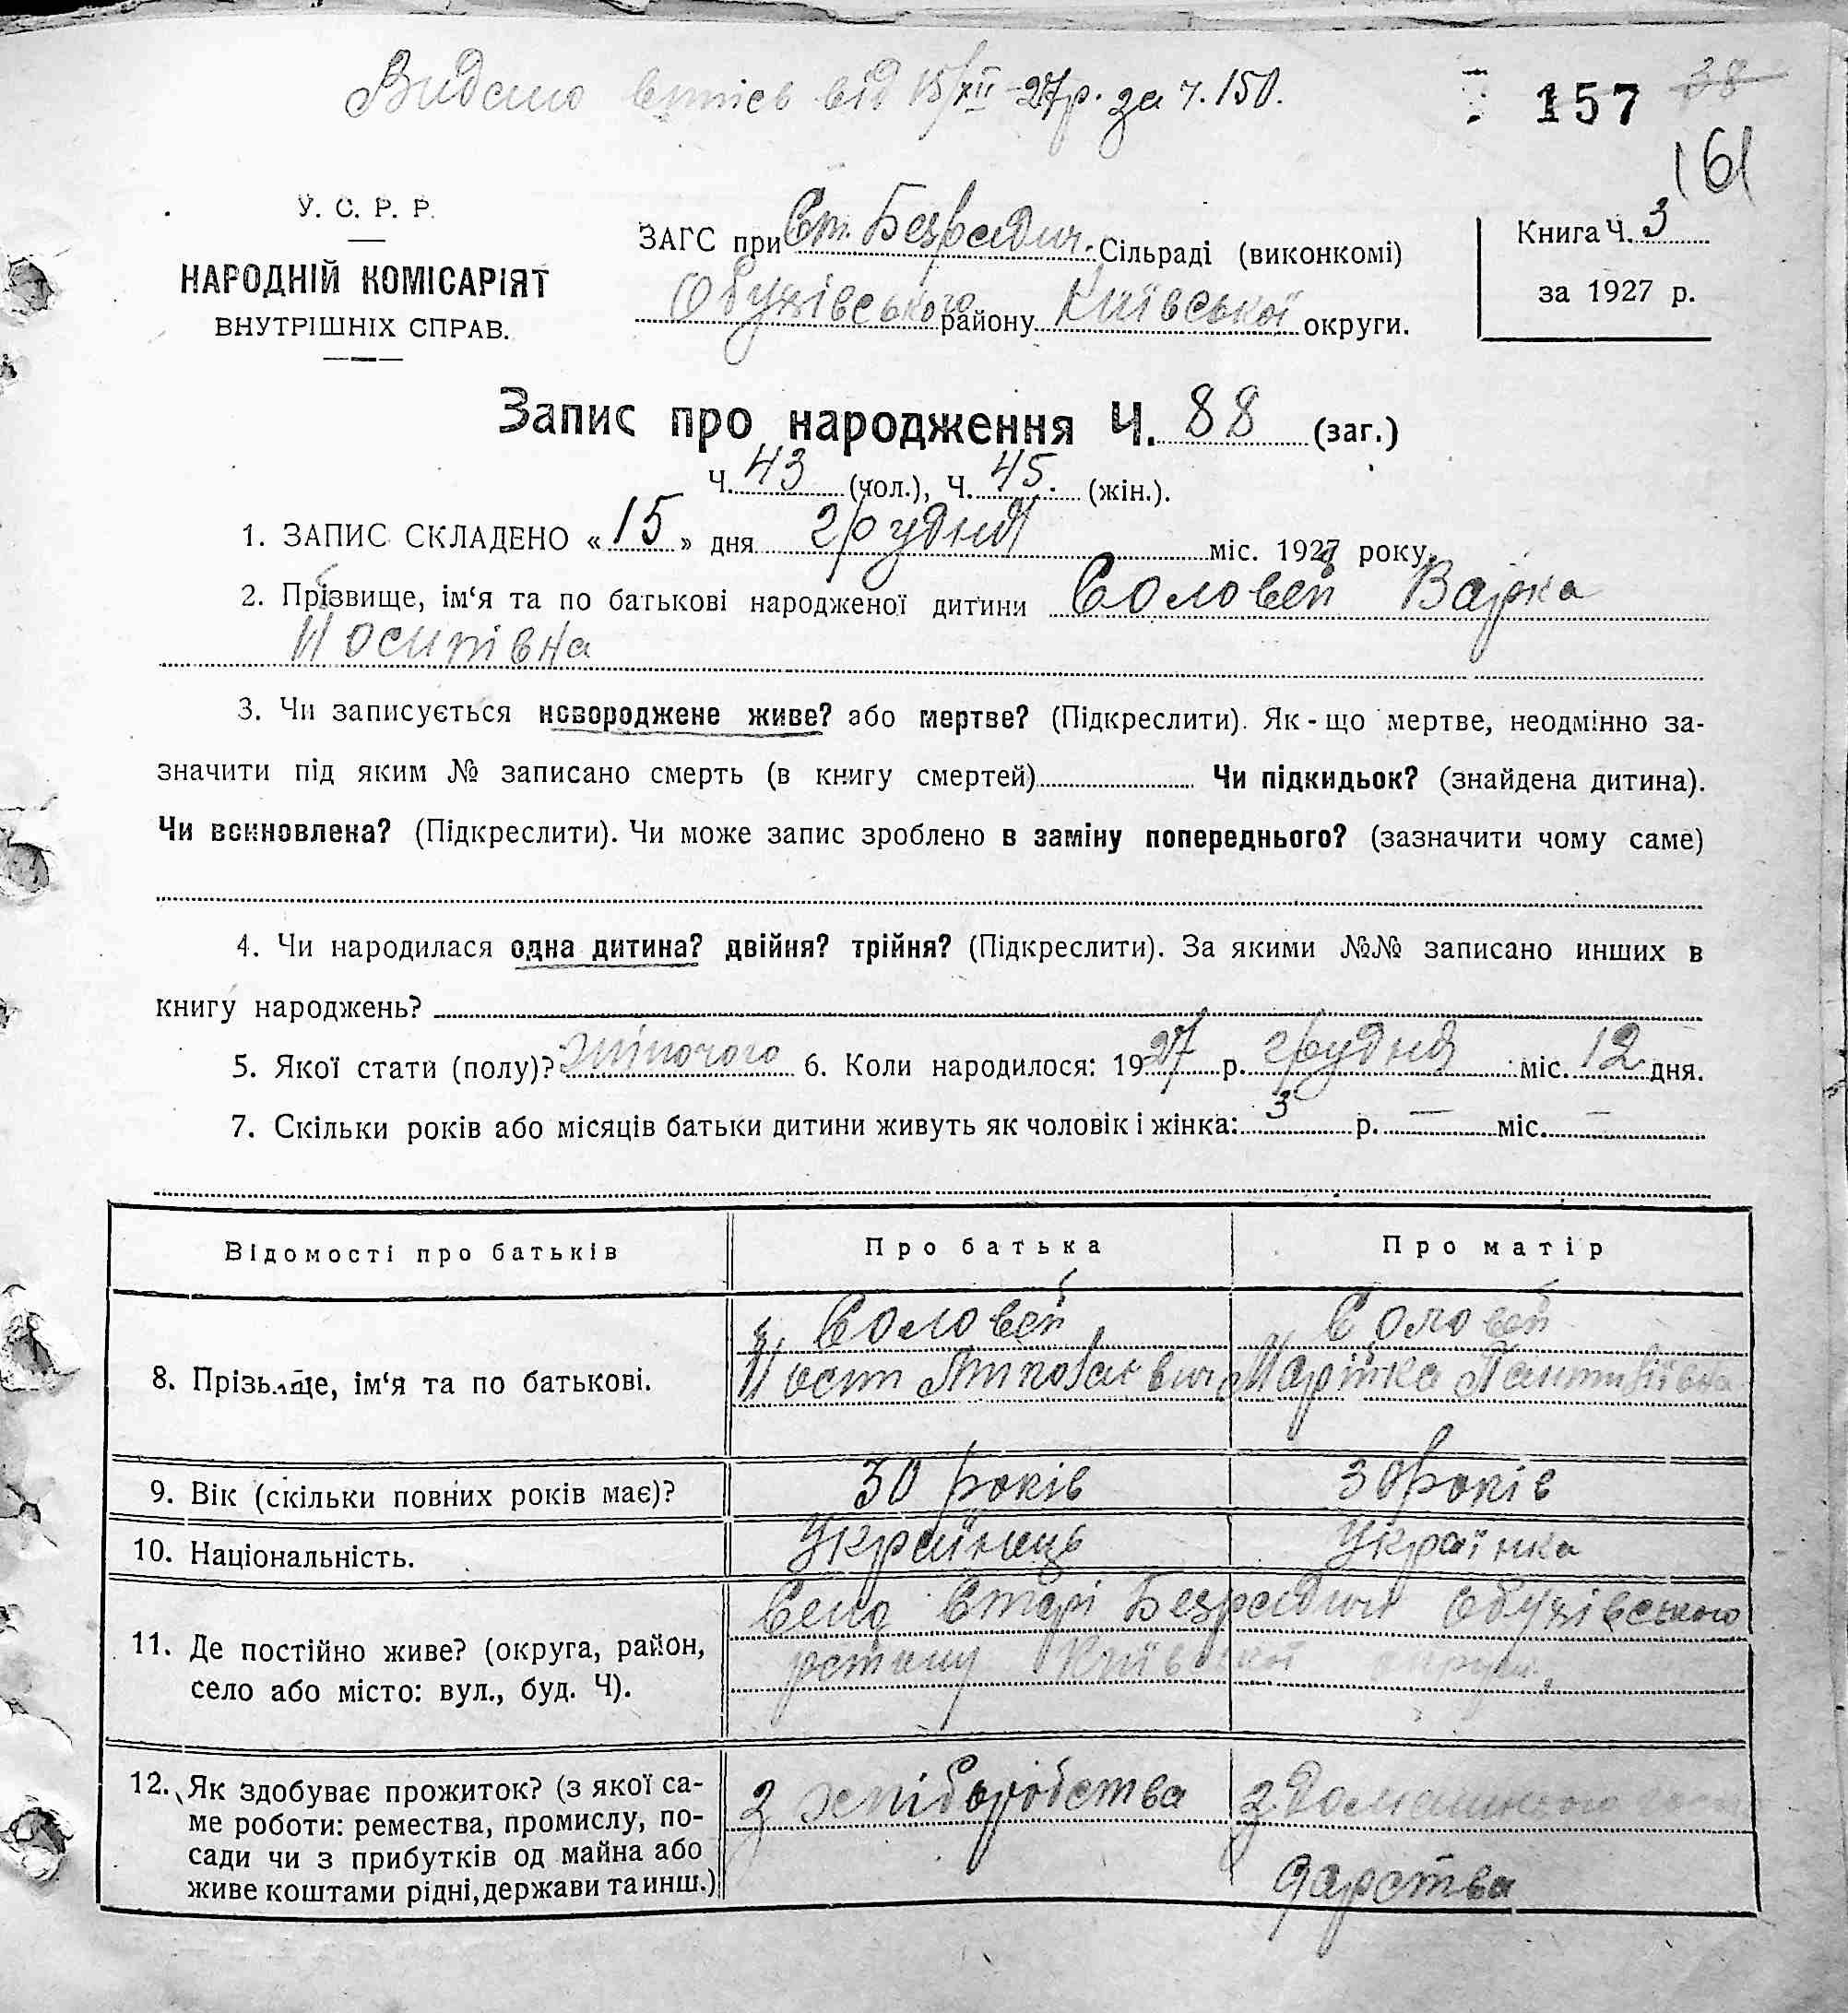 Видано витяг від 15/XII-27р. за ч. 150.
157 38
161
У. С. Р. Р.
НАРОДНІЙ КОМІСАРІЯТ
ВНУТРІШНІХ СПРАВ.
ЗАГС при Ст. Безрадич. Сільраді (виконкомі)
Обухівського району Київської округи.
Книга Ч. 3
за 1927 р.
Запис про народження Ч. 88 (заг.)
Ч. 43 (чол.), Ч. 45. (жін.).
1. ЗАПИС СКЛАДЕНО « 15 » дня грудня міс. 1927 року.
2. Прізвище, ім‘я та по батькові народженої дитини Соловей Варка
Йосипівна
3. Чи записується новороджене живе? або мертве? (Підкреслити). Як-що мертве, неодмінно за-
значити під яким № записано смерть (в книгу смертей) Чи підкидьок? (знайдена дитина).
Чи всиновлена? (Підкреслити). Чи може запис зроблено в заміну попереднього? (зазначити чому саме)
4. Чи народилася одна дитина? двійня? трійня? (Підкреслити). За якими №№ записано инших в
книгу народжень?
5. Якої стати (полу)? жіночого 6. Коли народилося: 1927 р. грудня міс. 12 дня.
7. Скільки років або місяців батьки дитини живуть як чоловік і жінка: 3 р. — міс. —
Відомості про батьків Про батька Про матір
8. Прізвище, ім‘я та по батькові.
Соловей
Йосип
Соловей
Марійка
9. Вік (скільки повних років має)? 30 років 30 років
10. Національність. Українець Українка
11. Де постійно живе? (округа, район,
село або місто: вул., буд. Ч).
Село Старі Безрадичі Обухівського
району Київської округи.
12. Як здобуває прожиток? (з якої са-
ме роботи: ремества, промислу, по-
сади чи з прибутків од майна або
живе коштами рідні, держави та инш.)
з хліборобства
з домашнього госпо
дарства